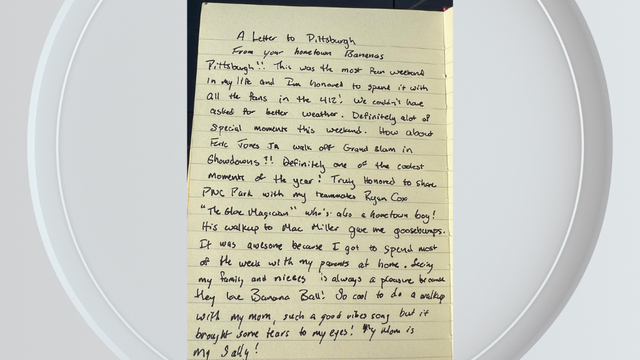 A Letter to Pittsburgh
From your hometown Bananas
Pittsburgh!! This was the most fun weekend
in my life and I'm honored to spend it with
all the fans in the 412! We couldn't have
asked for better weather. Definitely alot of
special moments this weekend. How about
Eric Jones Jr walk off Grand slam in
Showdowns!! Definitely one of the coolest
moments of the year! Truly honored to share
PNC Park with my teammates Ryan Cox
"The Glove Magician" who's also a hometown boy!
His walkup to Mac Miller gave me goosebumps.
It was awesome because I got to spend most
of the week with my parents at home. Seeing
my family and nieces is always a pleasure because
they love Banana Ball! So cool to do a walkup
with my mom, such a good vibes song but it
brought some tears to my eyes! My mom is
my Sally!